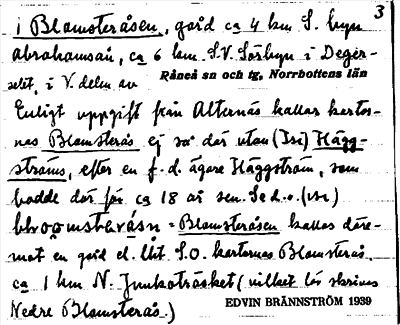 3
i Blomsteråsen, gård ca 4 km S. byn
Abrahamsån, ca 6 km. S.V. Sörbyn i Deger-
selet, i V. delen av Råneå sn och tg, Norrbottens län
Enligt uppgift från Alternäs kallas kartor-
nas Blomsterås ej så där utan (Jsi) Hägg-
ströms, efter en f.d. ägare Häggström, som
bodde där för ca 18 år sen. Se d.o. (vs.)
= Blomsteråsen kallas däre-
mot en gård el. lht. S.O. kartornas Blomsterås.
ca 1 km N. Junkoträsket (vilket bör skrivas
Nedre Blomsterås.)
EDVIN BRÄNNSTRÖM 1939